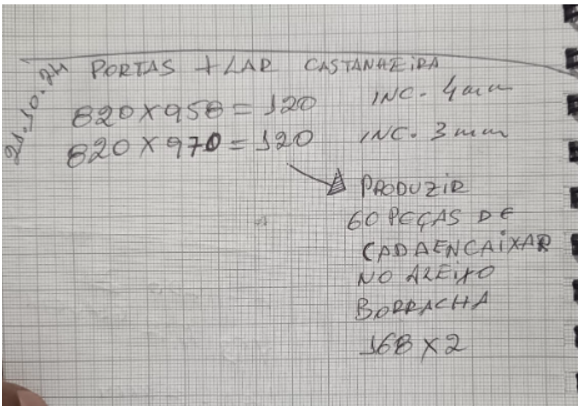 21.10.24
PORTAS + LAR CASTANHEIRA
820 X 958 = 120 INC. 4mm
820 X 970 = 120 INC. 3mm
PRODUZIR
60 PEÇAS DE
CADA ENCAIXAR
NO ALEIXO
BORRACHA
168 X 2